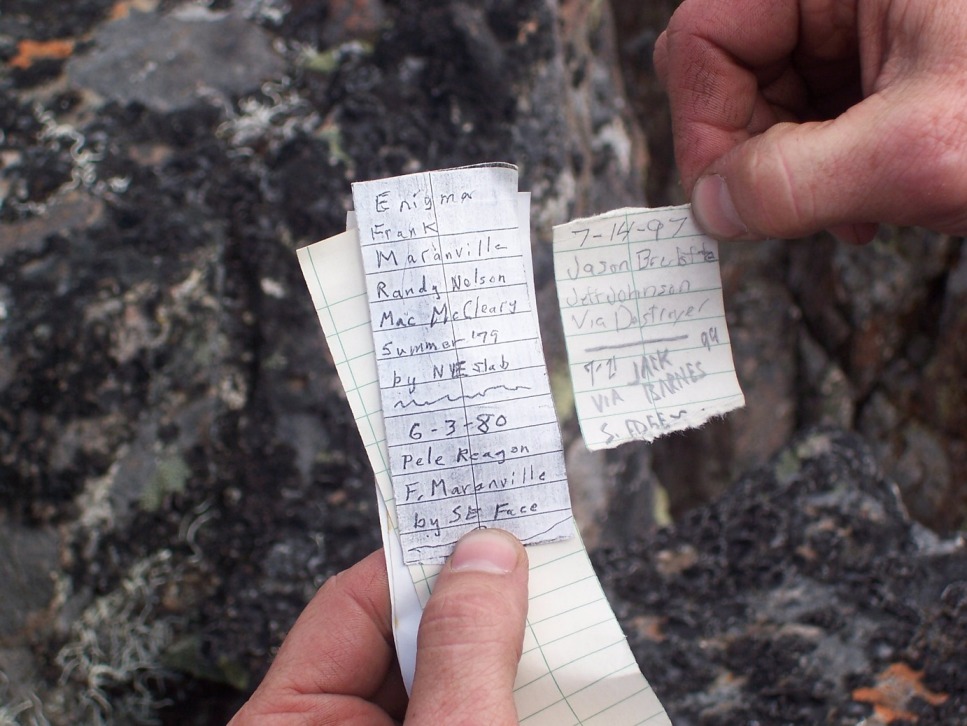 Enigma
Frank
Maranville
Randy Nelson
Mac McCleary
Summer '79
by NE Slab
6-3-80
Pete Reagon
F. Maranville
by SE Face
7-14-97
Jason
Jeff Johnson
Via Destroyer
7-7 JACK 99
VIA BARNES
S. FACE